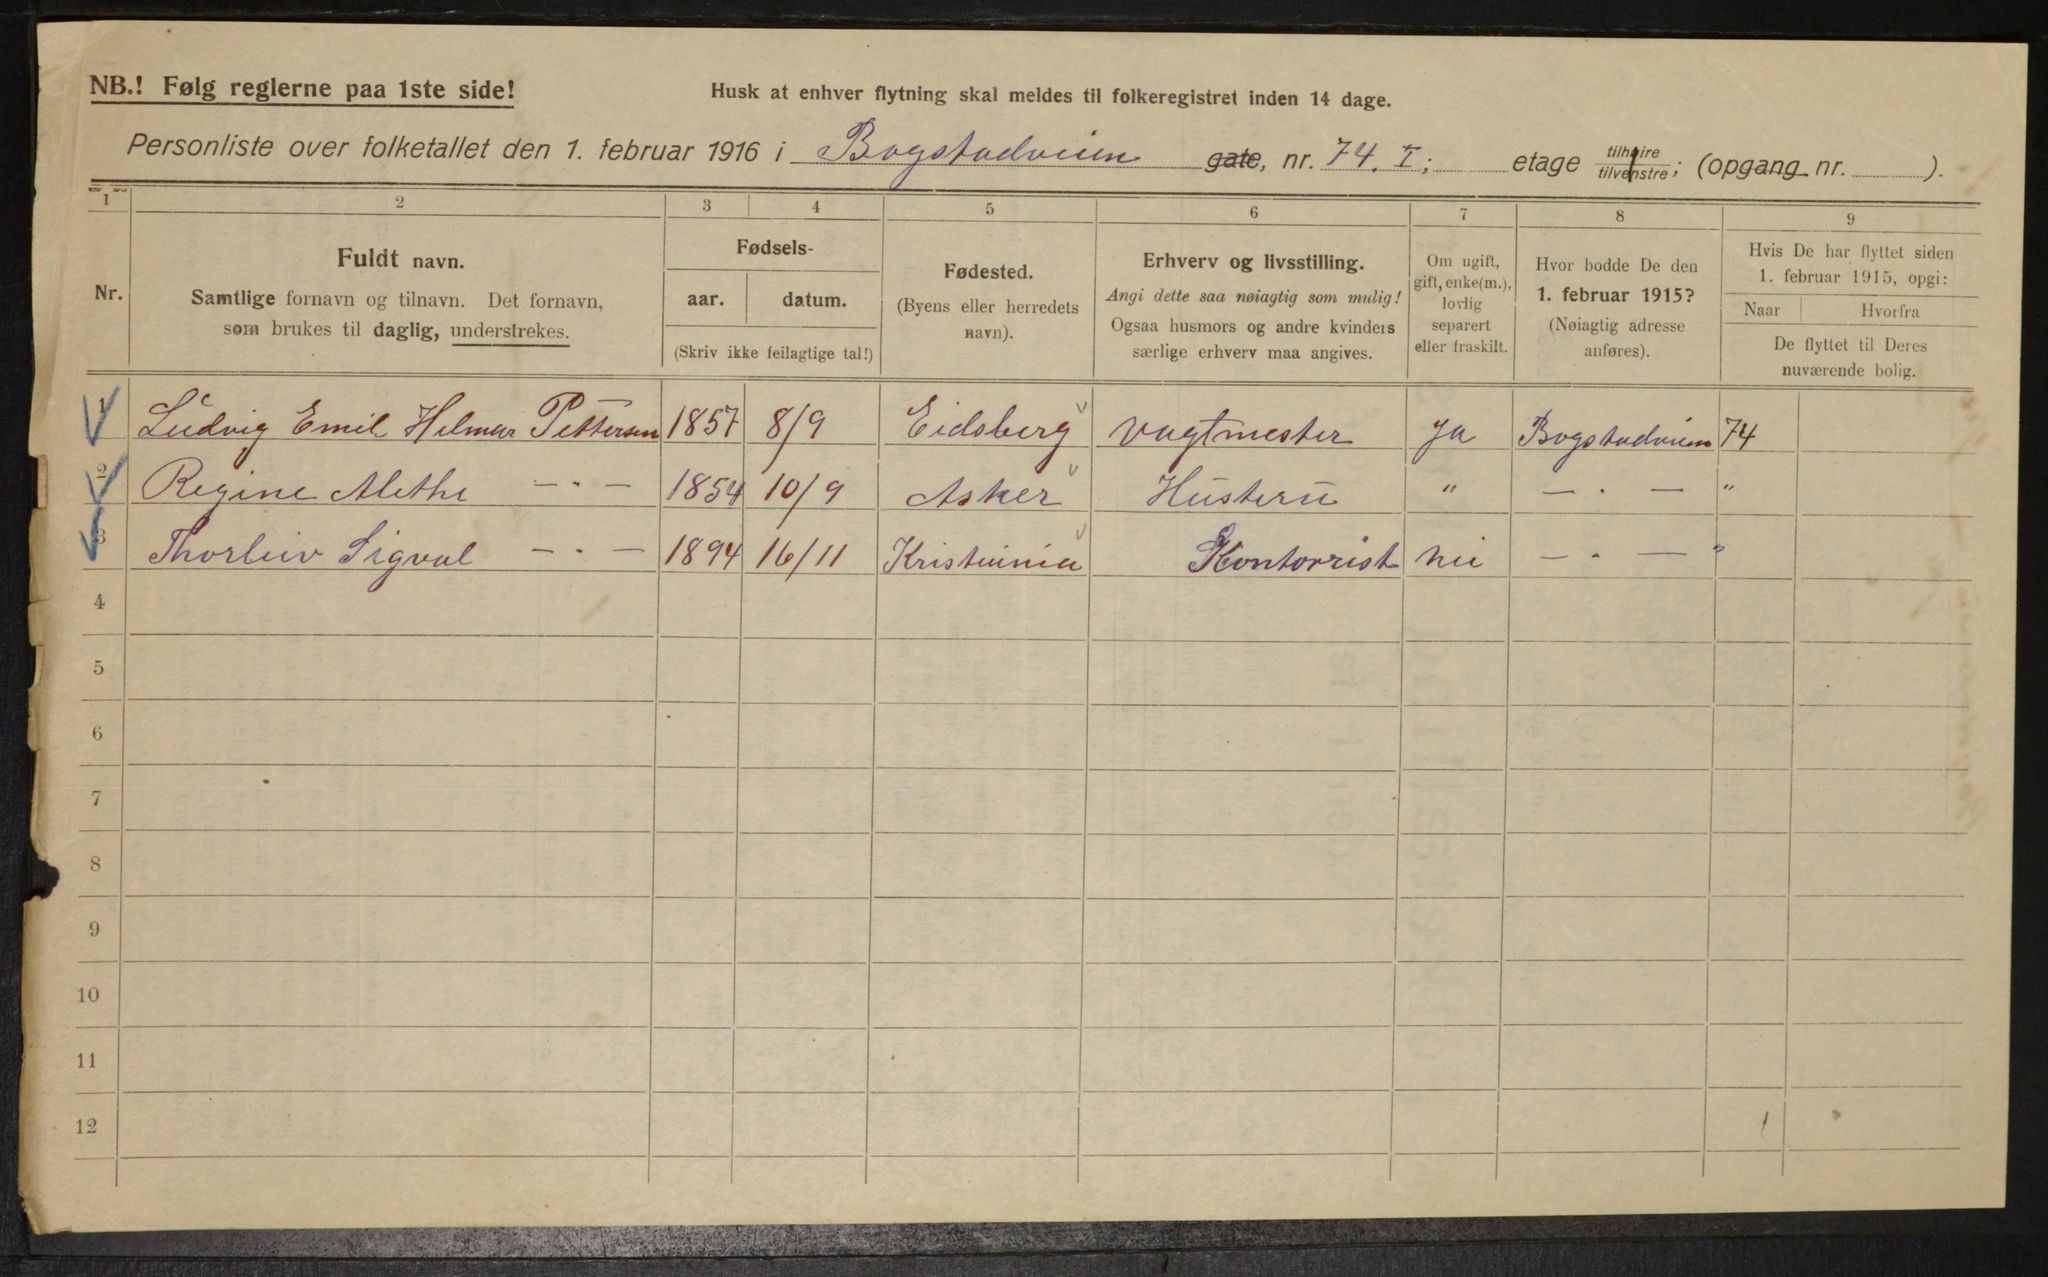 NB.! Følg reglerne paa 1ste side!
Husk at enhver flytning skal meldes til folkeregistret inden 14 dage.
Personliste over folketallet den 1. februar 1916 i Bogstadveien gate, nr. 74. I; etage tilhøire/tilvenstre; (opgang nr. ).
1 2 3 4 5 6 7 8 9
Nr.
Fuldt navn.
Samtlige fornavn og tilnavn. Det fornavn,
som brukes til daglig, understrekes.
Fødsels-
aar. datum.
(Skriv ikke feilagtige tal!)
Fødested.
(Byens eller herredets
navn).
Erhverv og livsstilling.
Angi dette saa nøiagtig som mulig!
Ogsaa husmors og andre kvinders
særlige erhverv maa angives.
Om ugift,
gift, enke(m.),
lovlig
separert
eller fraskilt.
Hvor bodde De den
1. februar 1915?
(Nøiagtig adresse
anføres).
Hvis De har flyttet siden
1. februar 1915, opgi:
Naar Hvorfra
De flyttet til Deres
nuværende bolig.
1 Ludvig Emil Hilmar Pettersen 1857 8/9 Eidsberg Vagtmester ja Bogstadveien 74
2 Regine Alethe — · — 1854 10/9 Asker Hustru " — · — "
3 Thorleiv Sigval — · — 1894 16/11 Kristiania Kontorrist nei — · — "
4
5
6
7
8
9
10
11
12